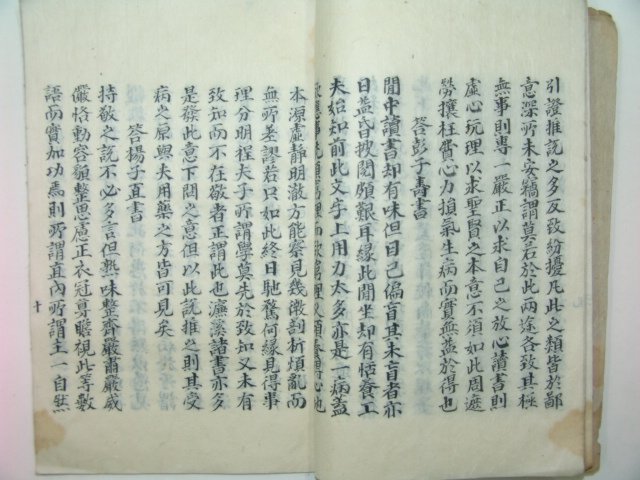 引證推說之多反致紛擾凡此之類皆於鄙
意深所未安竊謂莫若於此兩途各致其極
無事則專一嚴正以求自己之放心讀書則
虛心玩理以求聖賢之本意不須如此周遮
勞攘枉費心力損氣生病而實無益於得也
答彭子壽書
閒中讀書却有味但目已偏盲其未盲者亦
日益昏披閱頗艱耳緣此閒坐却有恬養工
夫始知前此文字上用力太多亦是一病蓋
本源虛靜明澈方能察見幾微剖析煩亂而
無所差謬若只如此終日馳騖何緣見得事
理分明程夫子所謂學莫先於致知又未有
致知而不在敬者正謂此也濂溪諸書亦多
是發此意下問之意但以此說推之則其受
病之原與夫用藥之方皆可見矣
答楊子直書
持敬之說不必多言但熟味整齊嚴肅嚴威
儼恪動容貌整思慮正衣冠尊瞻視此等數
語而實加功焉則所謂直內所謂主一自然
十